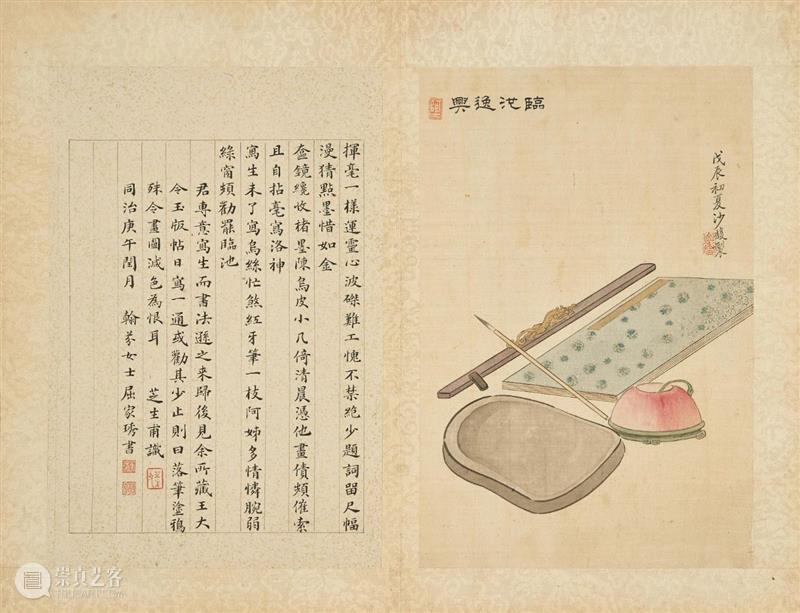 臨池逸興
戊辰初夏沙馥製
揮毫一樣運靈心波磔難工愧不禁絶少題詞留尺幅
漫猜點墨惜如金
奩鏡纔收楮墨陳烏皮小几倚清晨憑他畫債頻催索
且自拈毫寫洛神
寫生未了寫烏絲忙煞紅牙筆一枝阿姊多情憐腕弱
綠窗頻勸罷臨池
君專意寫生而書法遜之来歸後見余所藏王大
令玉版帖日寫一通或勸其少止則曰落筆塗鴉
殊令畫圖減色為恨耳 芝生甫識
同治庚午閏月 翰芬女士屈家琇書
崇真艺客